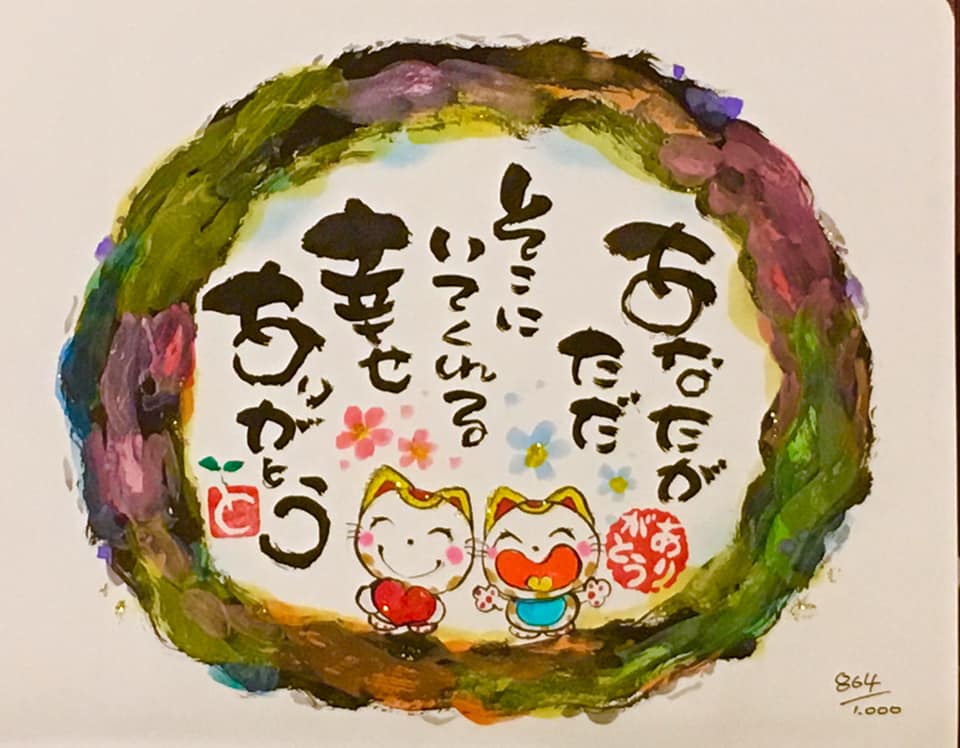 あなたが
ただ
そこに
いてくれる
幸せ
ありがとう
と
ありがとう
864/1.000